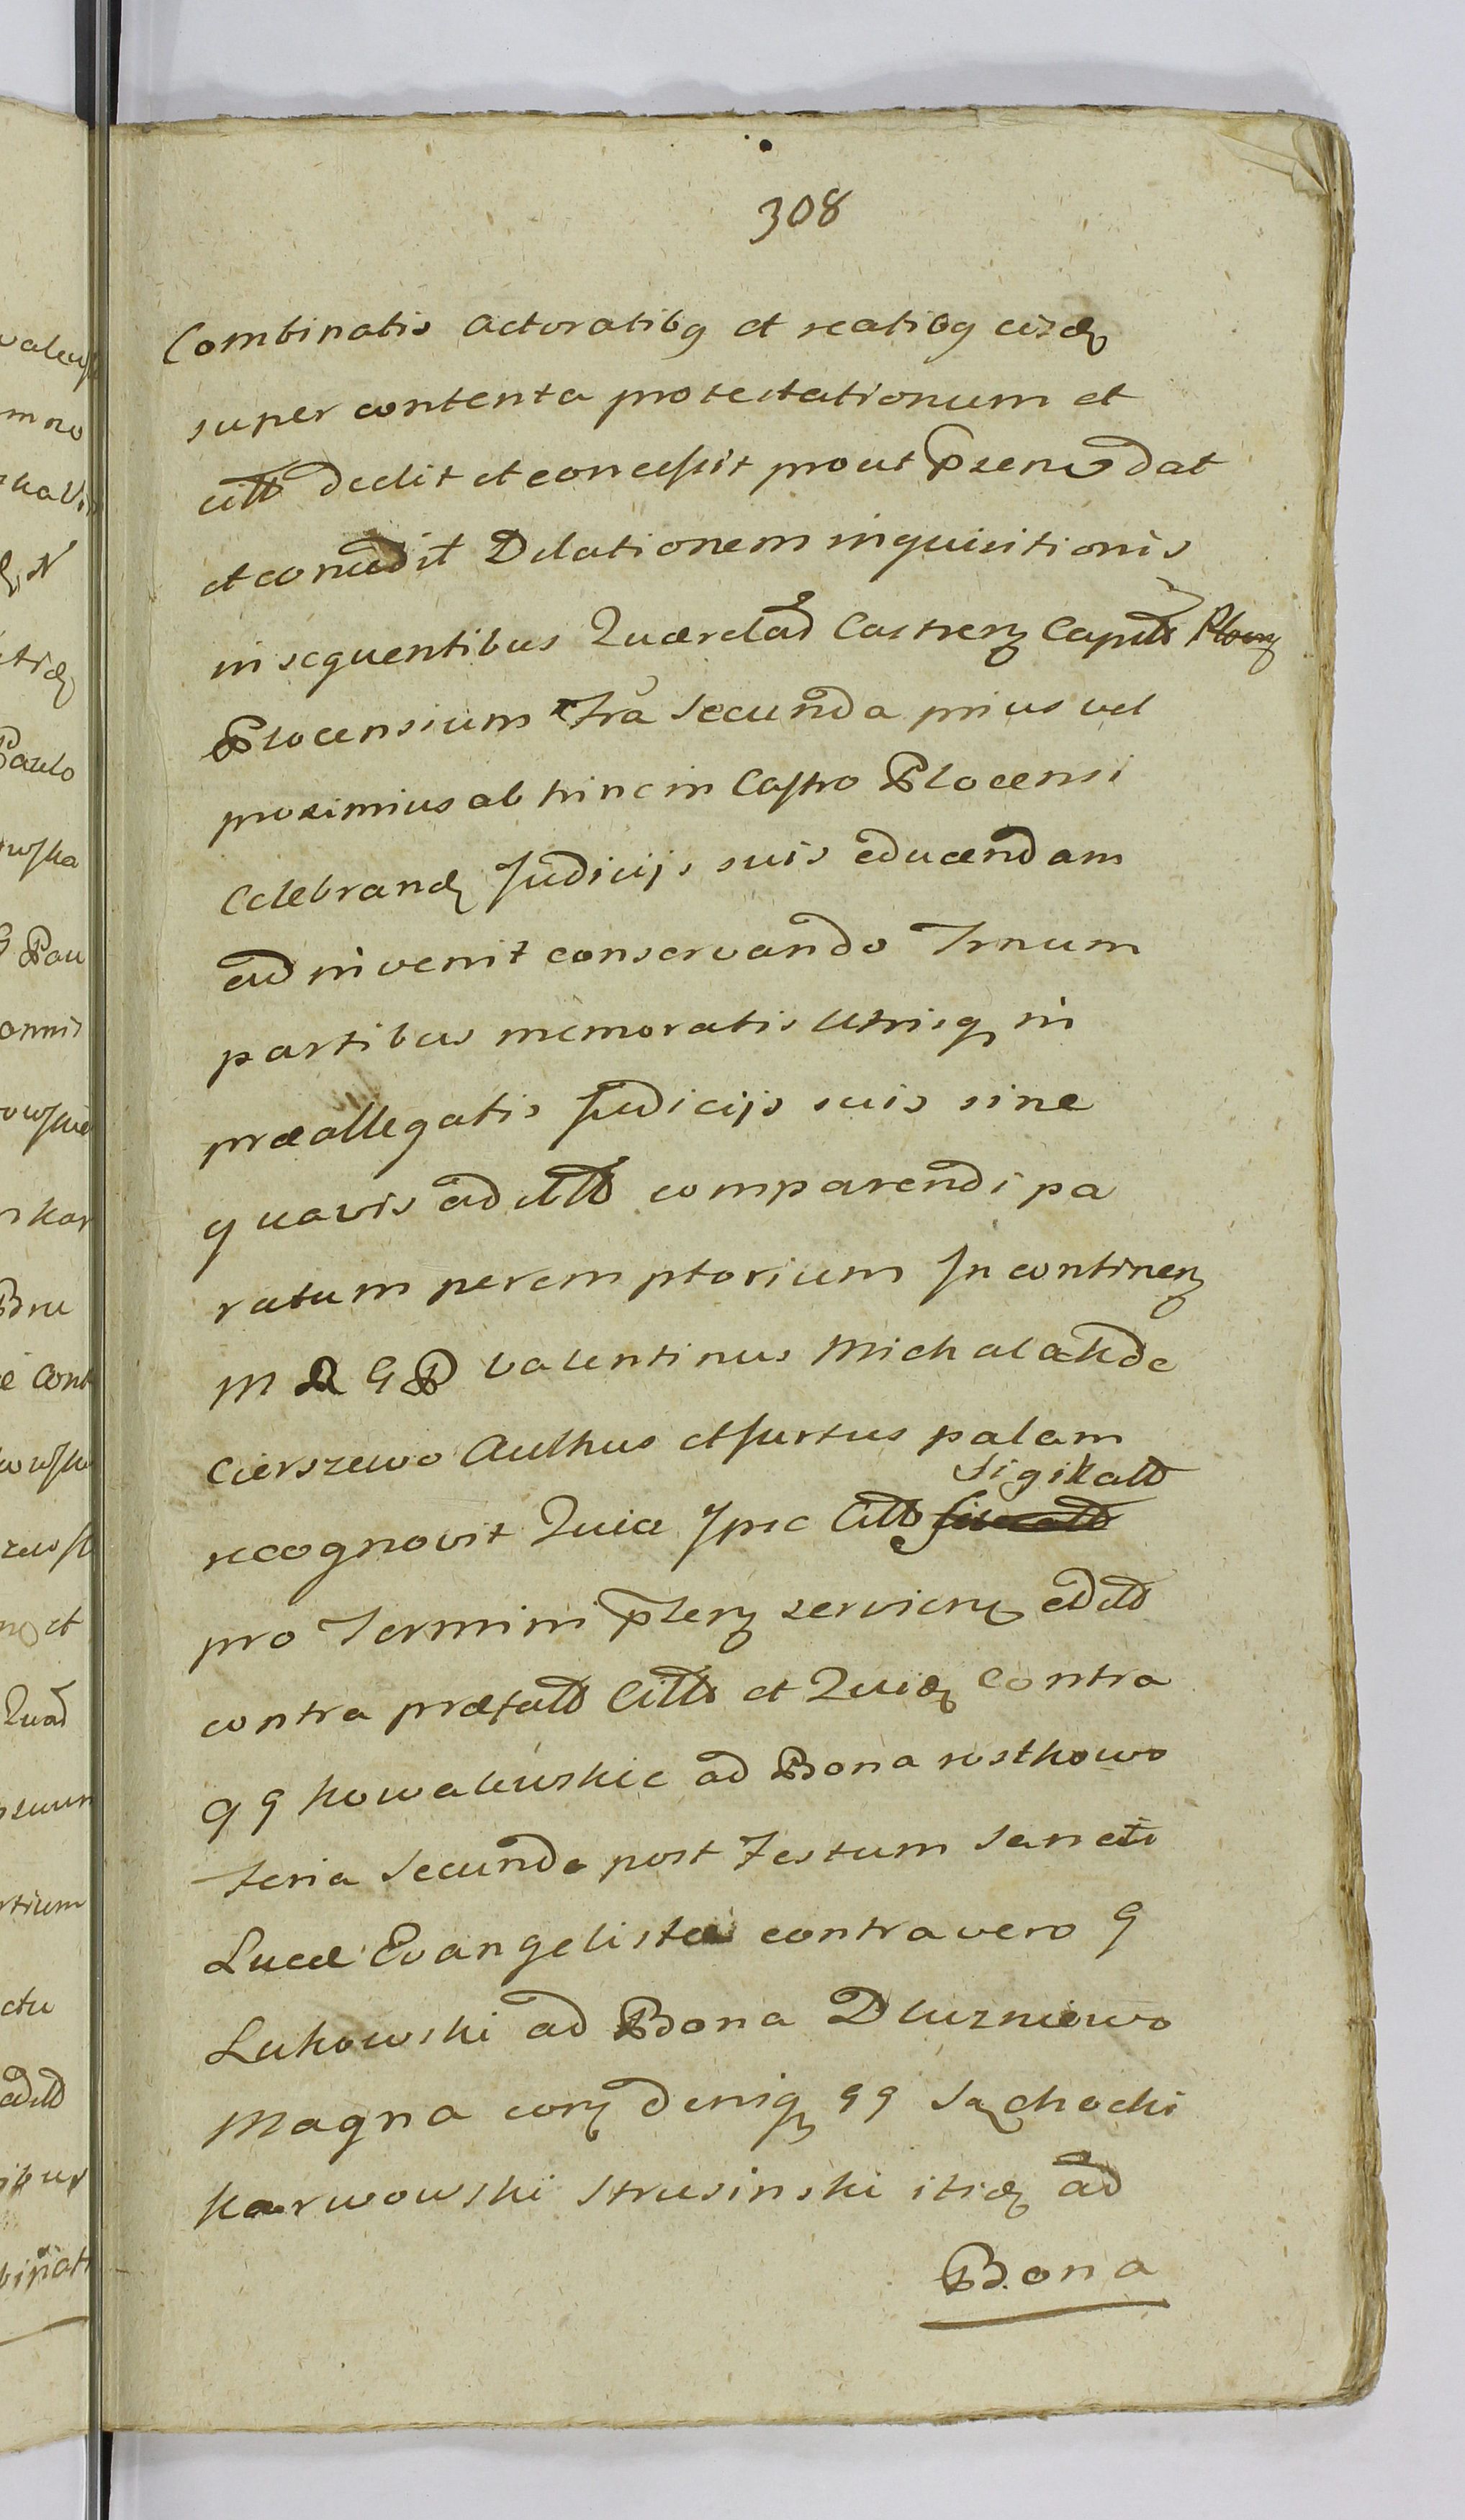 308
Combinatis actoratibq et reatibq eisdē
super contenta protestationum et
citt dedit et concessit prout p̄senti dat
et concedit Delationem inquisitionis
in sequentibus Querelaȓ Castreng Capitt Plocen
Plocensium Fr̄a Secunda prius vel
proximius ab hinc in Castro Plocensi
Celebrand Judicijs suis educendam
adinvenit conservando Trnum
partibus memoratis Utrisq in
præallegatis Judicijs suis sine
quavis adcitt comparendi pa
ratum peremptorium In continen
M R G P Valentinus Michalak de
Cierszewo Aulhus et furtus palam
Sigillatt
recognovit Quia Ipse Citt
pro Termini p̄sen servien edtt
contra præfatt Citt et Quidē Contra
GG Kowalewskie ad Bona rostkowo
feria Secunda post Festum Sancti
Lucæ Evangelistæ contra vero G
Lukowski ad Bona Dluzniewo
Magna con deniq GG Sachocki
Karwowski Strusinski itidē ad
Bona
valews
m no
Paulo
wska
G Pau
omnis
owskie
n kar
Bru
e Cont
et
Quaȓ
rtium
ctu
adcitt
ibus
binati